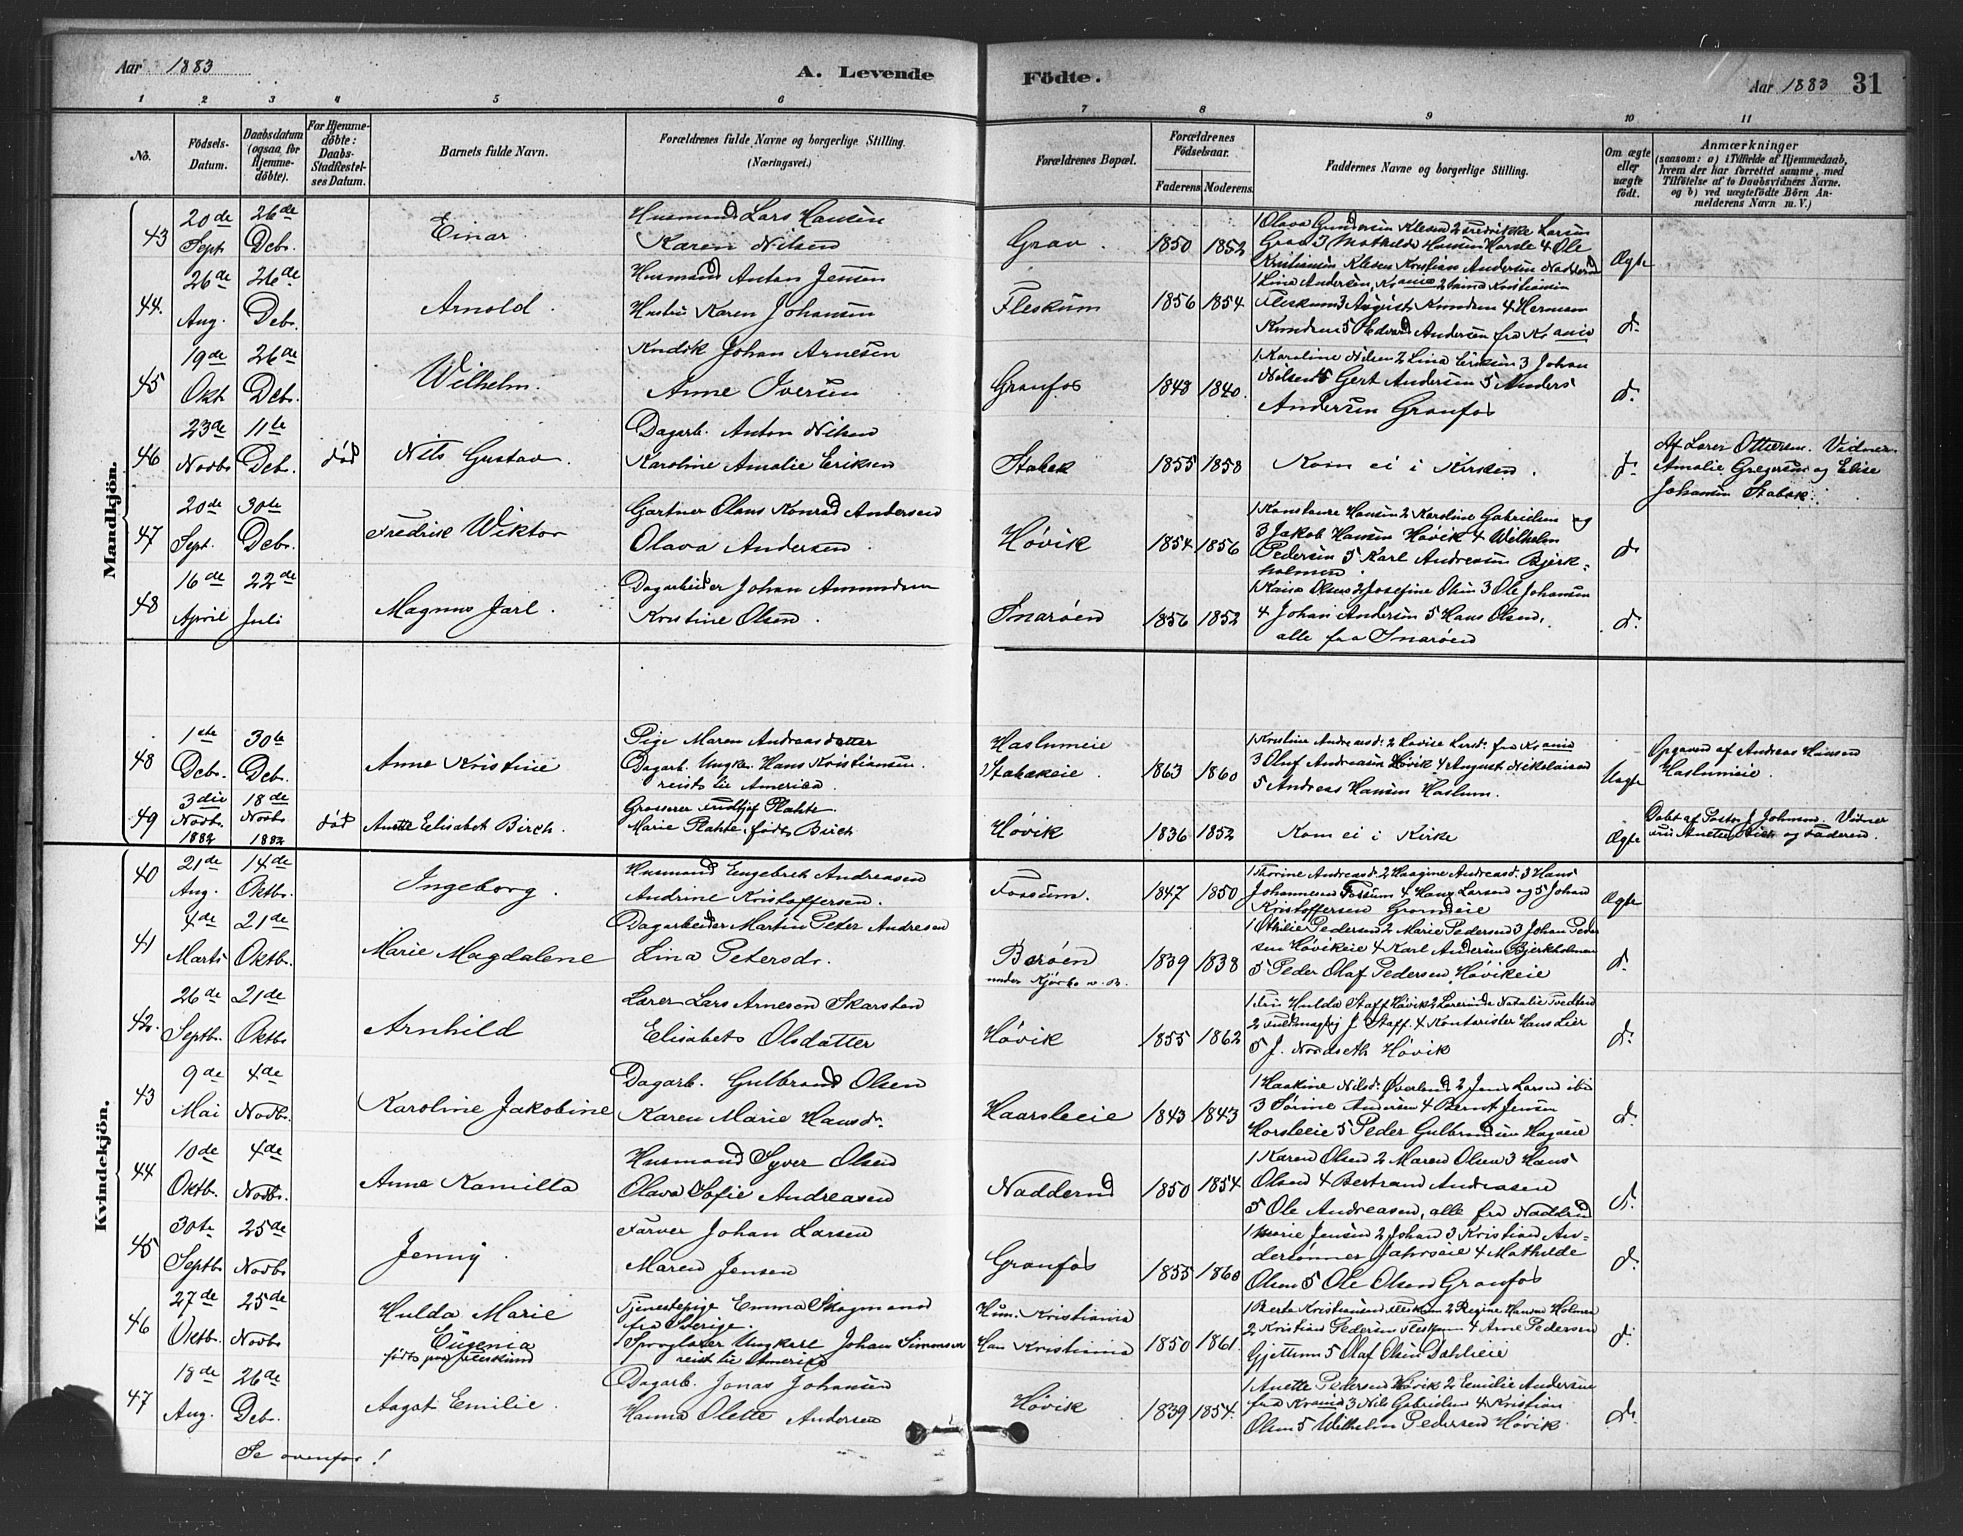 Aar 1883
A. Levende
Födte.
Aar 1883 31
1 2 3 4 5 6 7 8 9 10 11
No. Födsels-Datum. Daabsdatum (ogsaa for Hjemme-döbte). For Hjemme-döbte: Daabs-Stadfæstel-ses Datum. Barnets fulde Navn. Forældrenes fulde Navne og borgerlige Stilling. (Næringsvei.) Forældrenes Bopæl. Forældrenes Födselsaar. Faderens Moderens Faddernes Navne og borgerlige Stilling. Om ægte eller uægte födt. Anmærkninger (saasom: a) i Tilfælde af Hjemmedaab, hvem der har forrettet samme, med Tilföielse af to Daabsvidners Navne. og b) ved uægtefödte Börn An-melderens Navn m. V.)
Mandkjön.
43 20de Sept. 26de Debr. Einar. Husmand Lars Hansen
Karen Nilsen
Grav. 1850 1852
1 Olava Gundersen Kleven 2 Fredrikke Larsen
Grav 3 Mathilde Hansen Horsle 4 Ole
Kristiansen Kleven Kristian Andersen Nadderud Ægte
44. 26de Aug. 26de Debr. Arnold. Husmand Anton Jensen
Hustru Karen Johansen
Fleskum 1856 1854
1 Lina Andersen, Kr ania 2 Lina Kristiansen
Fleskum 3 August Knudsen 4 Herman
Knudsen 5 Edvard Andersen fra Kr ania d.
45 19de Okt. 26de Debr. Wilhelm. Kudsk Johan Arnesen
Anne Iversen
Granfos 1843 1840.
1 Karoline Nilsen 2 Lina Eriksen 3 Johan
Nilsen 4 Gert Andersen 5 Anders
Andersen Granfos d.
46 23de Novbr 11te Deb. død Nils Gustav. Dagarb. Anton Nilsen
Karoline Amalie Eriksen
Stabek 1855 1858 Kom ei i Kirken. d.
Af Lærer Ottersen. Vidner
Amalie Gregersen og Elise
Johansen Stabæk.
47 20de Sept. 30te Debr. Fredrik Wiktor Gartner Olaus Konrad Andersen
Olava Andersen.
Høvik 1854 1856
1 Konstanse Hansen 2 Karoline Gabrielsen og
3 Jakob Hansen Høvik 4 Wilhelm
Pedersen 5 Karl Andresen Bjerk-
holmen. d.
48 16de April 22de Juli Magnus Jarl. Dagarbeider Johan Amundsen
Kristine Olsen.
Snarøen 1856 1852
1 Kaisa Olsen 2 Josefine Olsen 3 Ole Johansen
4 Johan Andersen 5 Hans Olsen,
alle fra Snarøen d.
48 1ste Debr. 30te Debr. Anne Kristine Pige Maren Andreasdatter
Dagarb. Ungkr. Hans Kristiansen.
reist til America.
Haslumeie
Stabækeie. 1863 1860
1 Kristine Andreasd: 2 Lovise Larsd: fra Kr ania
3 Oluf Andreasen Høvik 4 August Nikolaisen
5 Andreas Hansen Haslum. Uægte
Opgaven af Andreas Hansen
Haslumeie.
49 3die Novbr. 1882 18de Novbr 1882 død Anette Elisabet Birch. Grosserer Fridtjof Plahte
Marie Plahte, født Birch
Høvik 1836 1852 Kom ei i Kirke Ægte
Døbt af Pastor J Johnson. Vidner
Fru Anette Birch og Faderen.
Kvindekjön.
40 21de Aug. 14de Oktbr. Ingeborg. Husmand Engebret Andreasen
Andrine Kristoffersen.
Fossum. 1847 1850
1 Thorine Andreasd. 2 Haagine Andreasd. 3 Hans
Johannesen Fossum 4 Hans Larsen og 5 Johan
Kristoffersen Grorudeie Ægte
41 4de Marts 21de Oktbr. Marie Magdalene Dagarbeider Martin Peter Andresen
Lina Petersdr.
Borøen
under Kjørbo v. B. 1839 1838
1 Othilie Pedersen 2 Marie Pedersen 3 Johan Peder
sen Høvikeie 4 Karl Andersen Bjerkholmen
5 Peder Olaf Pedersen Høvikeie d.
42. 26de Septbr. 21de Oktbr Arnhild Lærer Lars Arneson Skarsten
Elisabet Olsdatter
Høvik 1855 1862
1 Fru Hulda Staff Høvik 2 Lærerinde Natalie Tvedten
2 Fuldmægtig J Staff. 4 Kontorister Hans Lier
5 J. Nordseth Høvik d.
43 9de Mai 4de Novbr. Karoline Jakobine Dagarb. Gulbrand Olsen
Karen Marie Hansdr.
Haarsleeie 1843 1843
1 Haakine Nilsdr. Øverland 2 Jens Larsen ibi
3 Sørine Andersen 4 Bernt Jensen
Horsleeie 5 Peder Gulbrandsen Hagaeie d.
44 10de Oktbr. 4de Novbr. Anne Kamilla Husmand Syver Olsen
Olava Sofie Andreasen
Nadderud 1850 1854
1 Karen Olsen 2 Maren Olsen 3 Hans
Olsen 4 Bertrand Andreasen
5 Ole Andreasen, alle fra Nadderud d.
45 30te Septbr. 25de Novbr. Jenny. Farver Johan Larsen
Maren Jensen
Granfos 1855 1860
1 Marie Jensen 2 Johan 3 Kristian An-
dersønner Jahrseie 4 Mathilde
Olsen 5 Ole Olsen Granfos d.
46 27de Oktbr. 25de Novbr. Hulda Marie
Eugenia
født paa Fleskum
Tjenestepige Emma Skogmand
fra Sverige.
Sproglærer Ungkarl Johan Simonsen
reist til Amerika
Hun. Kristiania
Han Kristiania 1850 1861
1 Berta Kristiansen Fleskum 2 Regine Hansen Holmen
2 Kristian Pedersen Fleskum 4 Arne Pedersen
Gjettum 5 Olaf Olsen Dahleie d.
47 18de Aug. 26de Deb. Aagot Emilie. Dagarb. Jonas Johansen
Hanna Olette Andersen
Høvik. 1839 1854.
1 Anette Pedersen Høvik 2 Emilie Andersen
fra Krania 3 Nils Gabrielsen 4 Kristian
Olsen 5 Wilhelm Pedersen Høvik. d.
Se ovenfor!